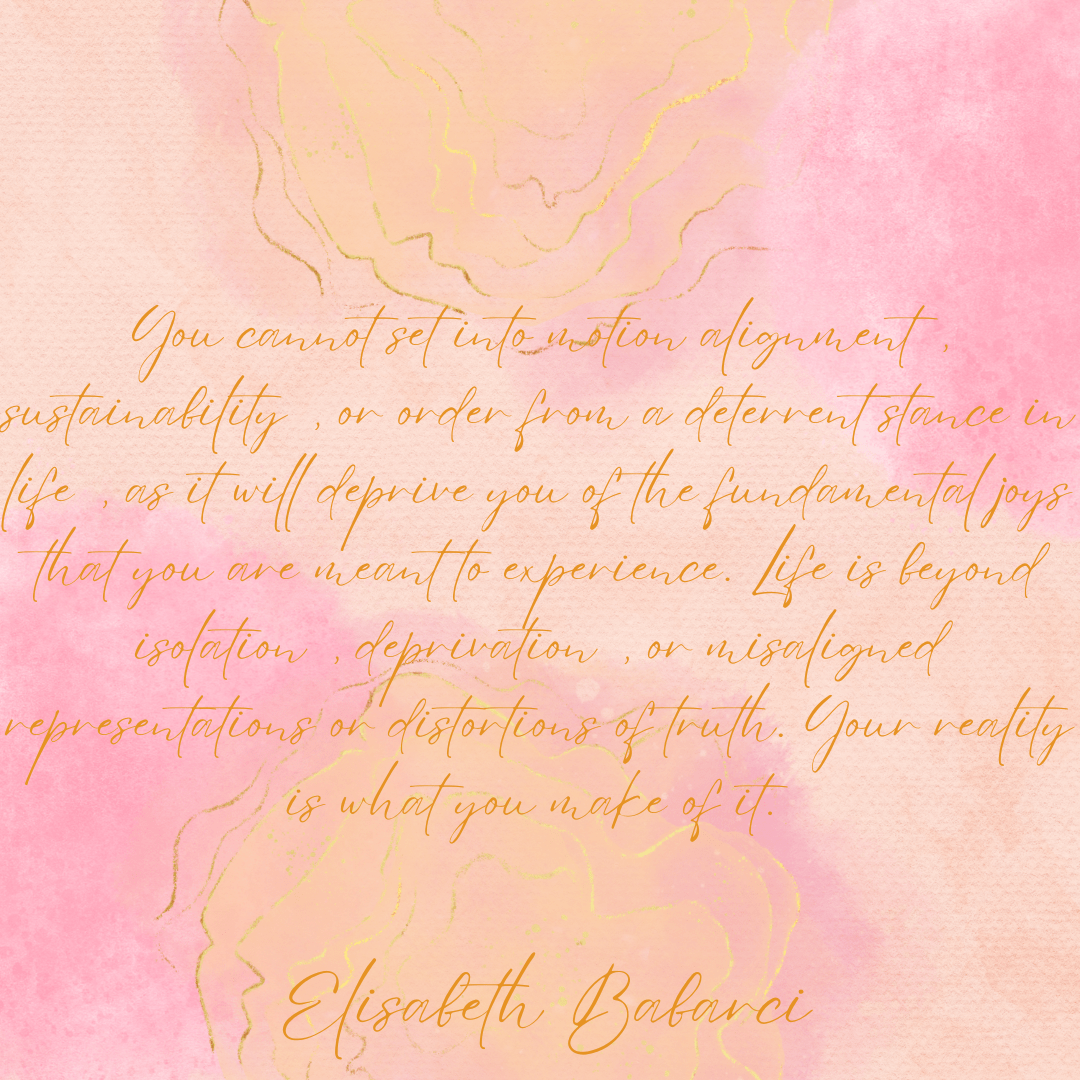 You cannot set into motion alignment ,
sustainability , or order from a deterrent stance in
life , as it will deprive you of the fundamental joys
that you are meant to experience. Life is beyond
isolation , deprivation , or misaligned
representations or distortions of truth. Your reality
is what you make of it.
Elisabeth Babarci